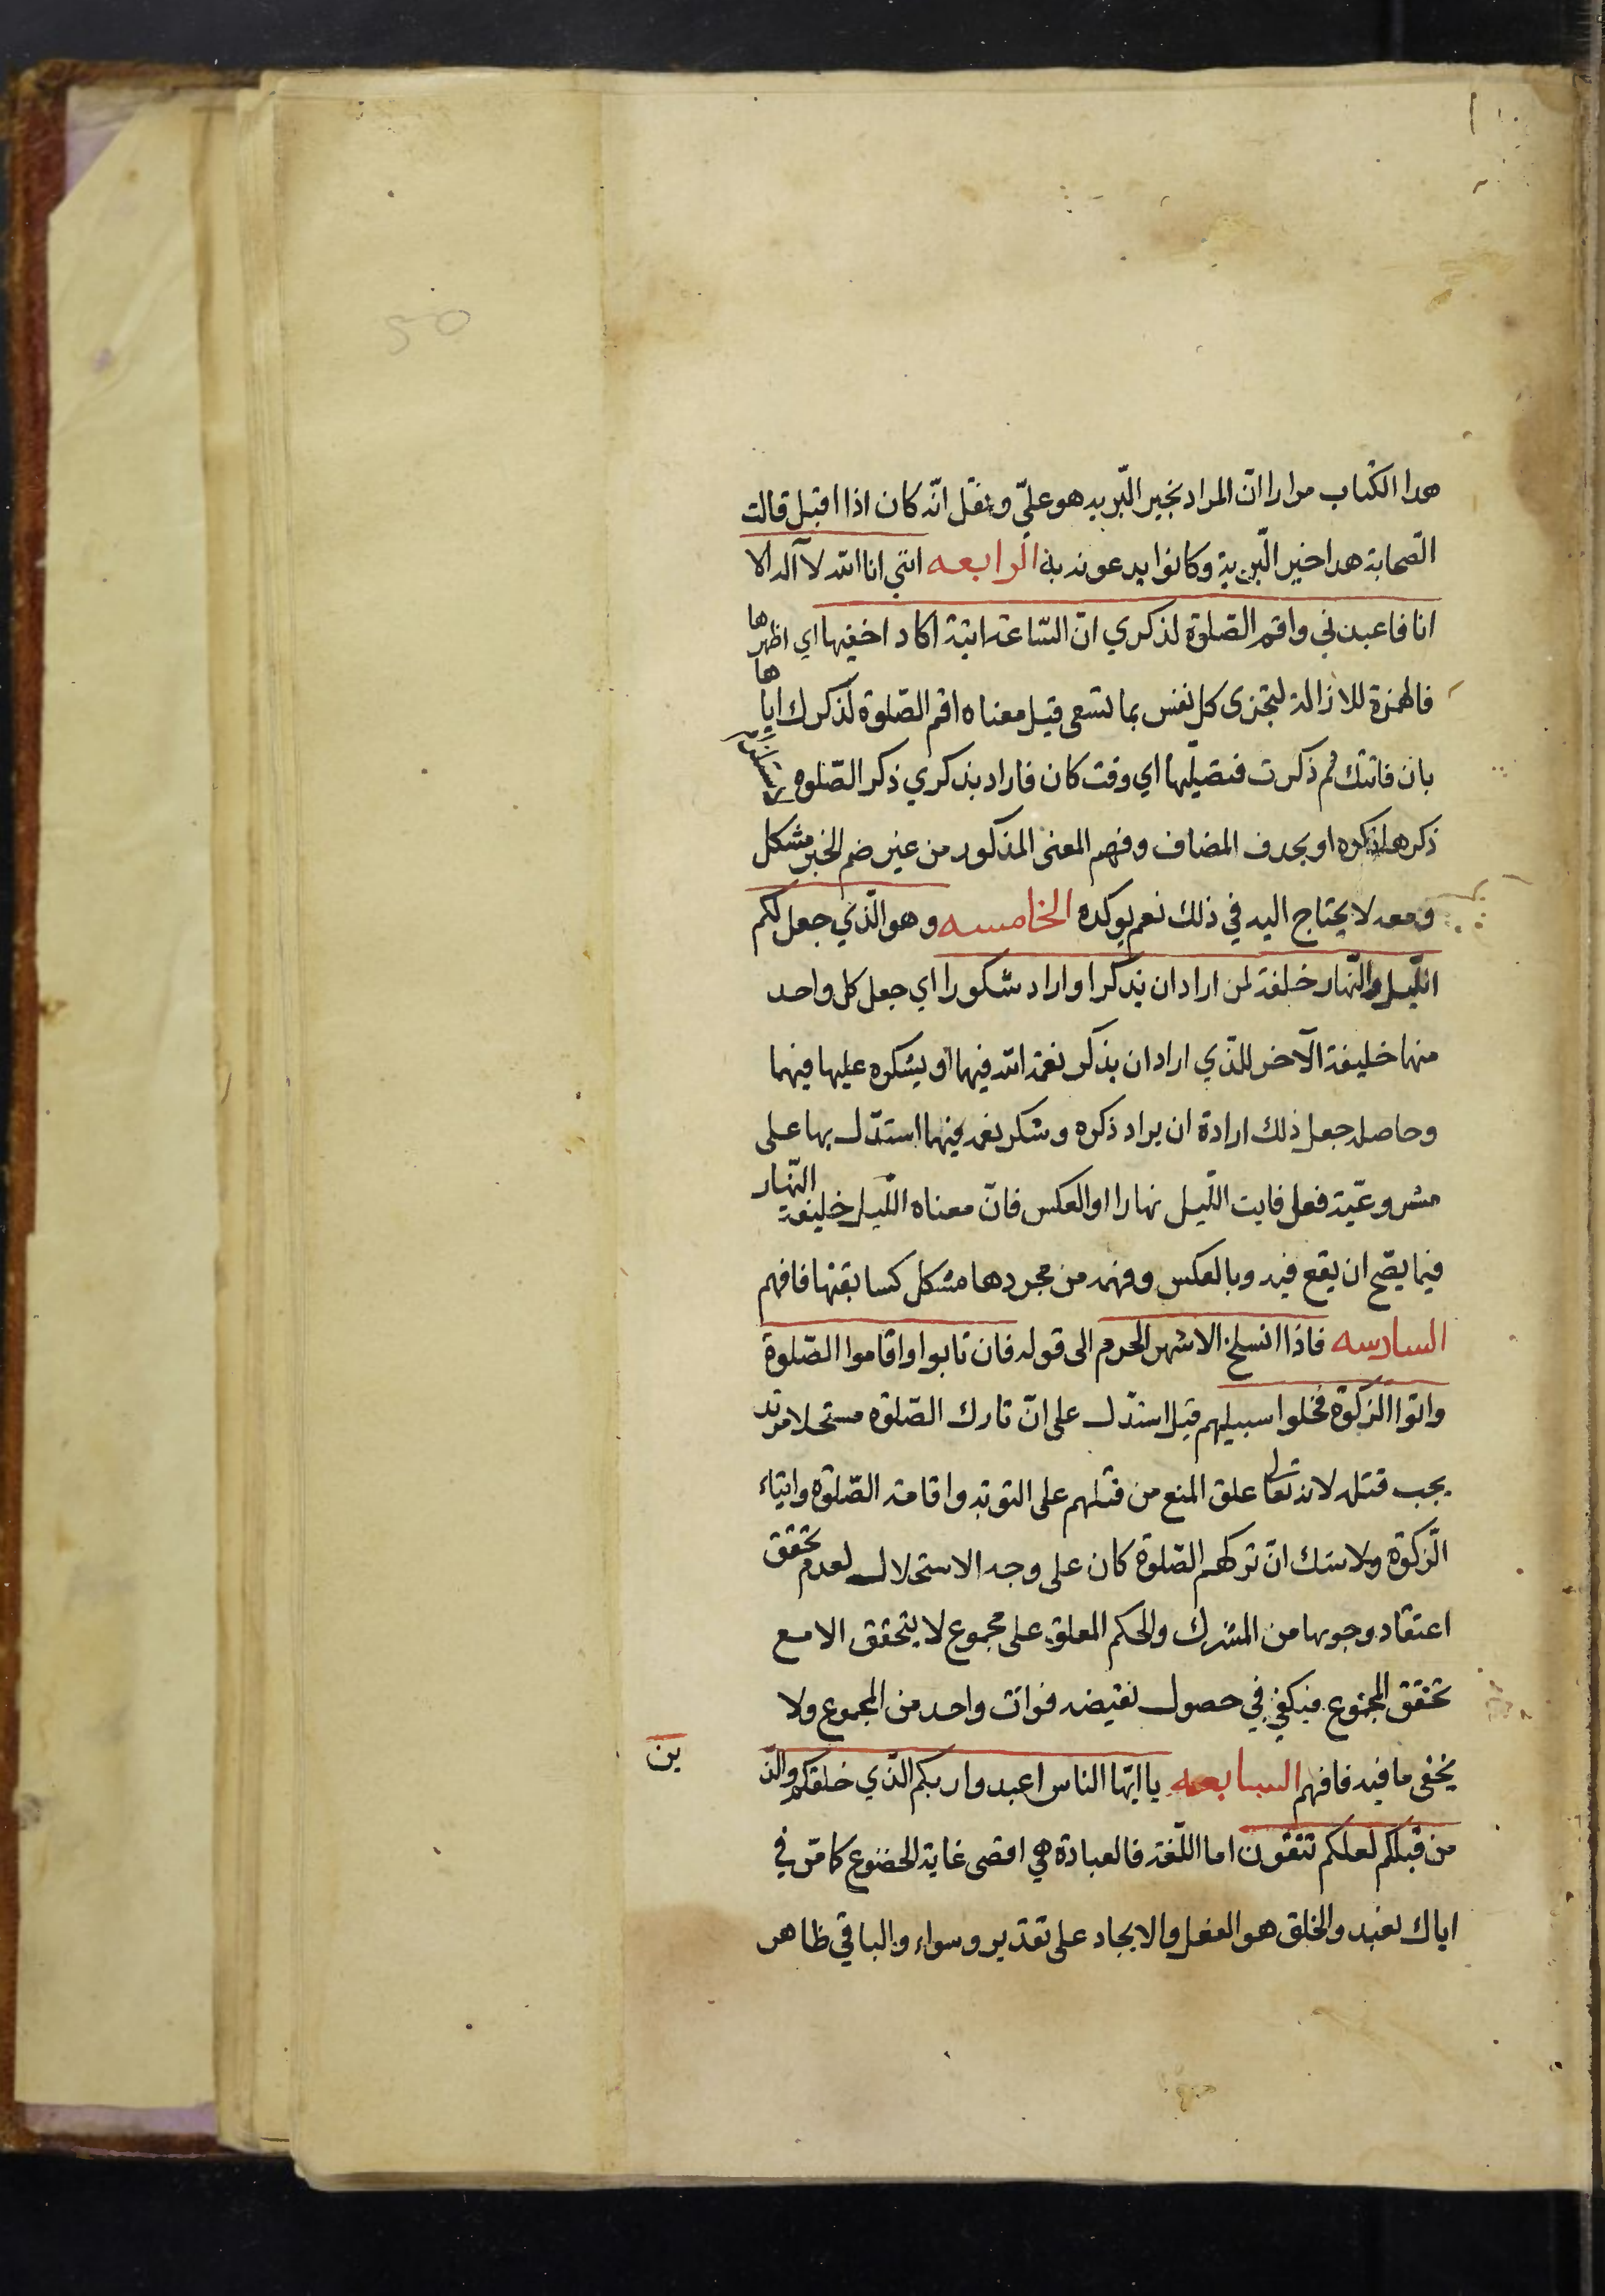 هذا الكتاب مرارا ان المراد بخير البّريه هو عليّ و نقل انّه كان اذا اقبل قالت
الصّحابة هذا خير البّرية وكانوا يدعونه به الرابعه انني انا الله لا آله الا
انا فاعبدني واقم الصّلوة لذكري انّ السّاعة اتية اكاد اخفيها اي اظهرها
فالهمزة للازالة لتجزى كل نفس بما تسعى قيل معناه اقم الصّلوة لذكرك اياها
بان فاتتك ثم ذكرت فتصلّيها اي وقت كان فاراد بذكري ذكر الصّلوه
ذكرها ذكره او بحذف المضاف وفهم المعنى المذكور من غير ضم الخبر مشكل
ومعه لا يحتاج اليه في ذلك نعم يوكده الخامسه وهو الّذي جعل لكم
اللّيل والنّهار خلفة لمن اراد ان يذكر او اراد شكورا اي جعل كل واحد
منها خليفة الآخر للّذي اراد ان يذكر نعمة الله فيهما او يشكره عليها فيهما
وحاصله جعل ذلك ارادة ان يراد ذكره وشكر نعمه فيهما استدّل بها على
مشروعيّة فعل فايت اللّيل نهارا او العكس فانّ معناه اللّيل خليفة النّهار
فيما يصّح ان يقع فيه وبالعكس وفهمه من مجردها مشكل كسابقتها فافهم
السادسه فاذا انسلخ الاشهر الحرم الى قوله فان تابوا واقاموا الصّلوة
واتوا الزكوة فخلوا سبيلهم قيل استدّل على انّ تارك الصّلوة مستحلا مرتد
يجب قتله لانه تعالى علق المنع من قتلهم على التوبة واقامة الصّلوة وايتاء
الزّكوة ولا شك انّ تركهم الصّلوة كان على وجه الاستحلال لعدم تحقق
اعتقاد وجوبها من المشرك والحكم المعلق على مجموع لا يتحقق الا مع
تحقق المجموع فيكفي في حصول نقيضه فوات واحد من المجموع ولا
يخفى ما فيه فافهم السابعه يا ايّها الناس اعبدوا ربكم الّذي خلقكم والّذين
من قبلكم لعلكم تتقون اما اللّغة فالعبادة هي اقصى غاية الخضوع كما مّر في
اياك نعبد والخلق هو الفعل والايجاد على تقدير وسواء والباقي ظاهر